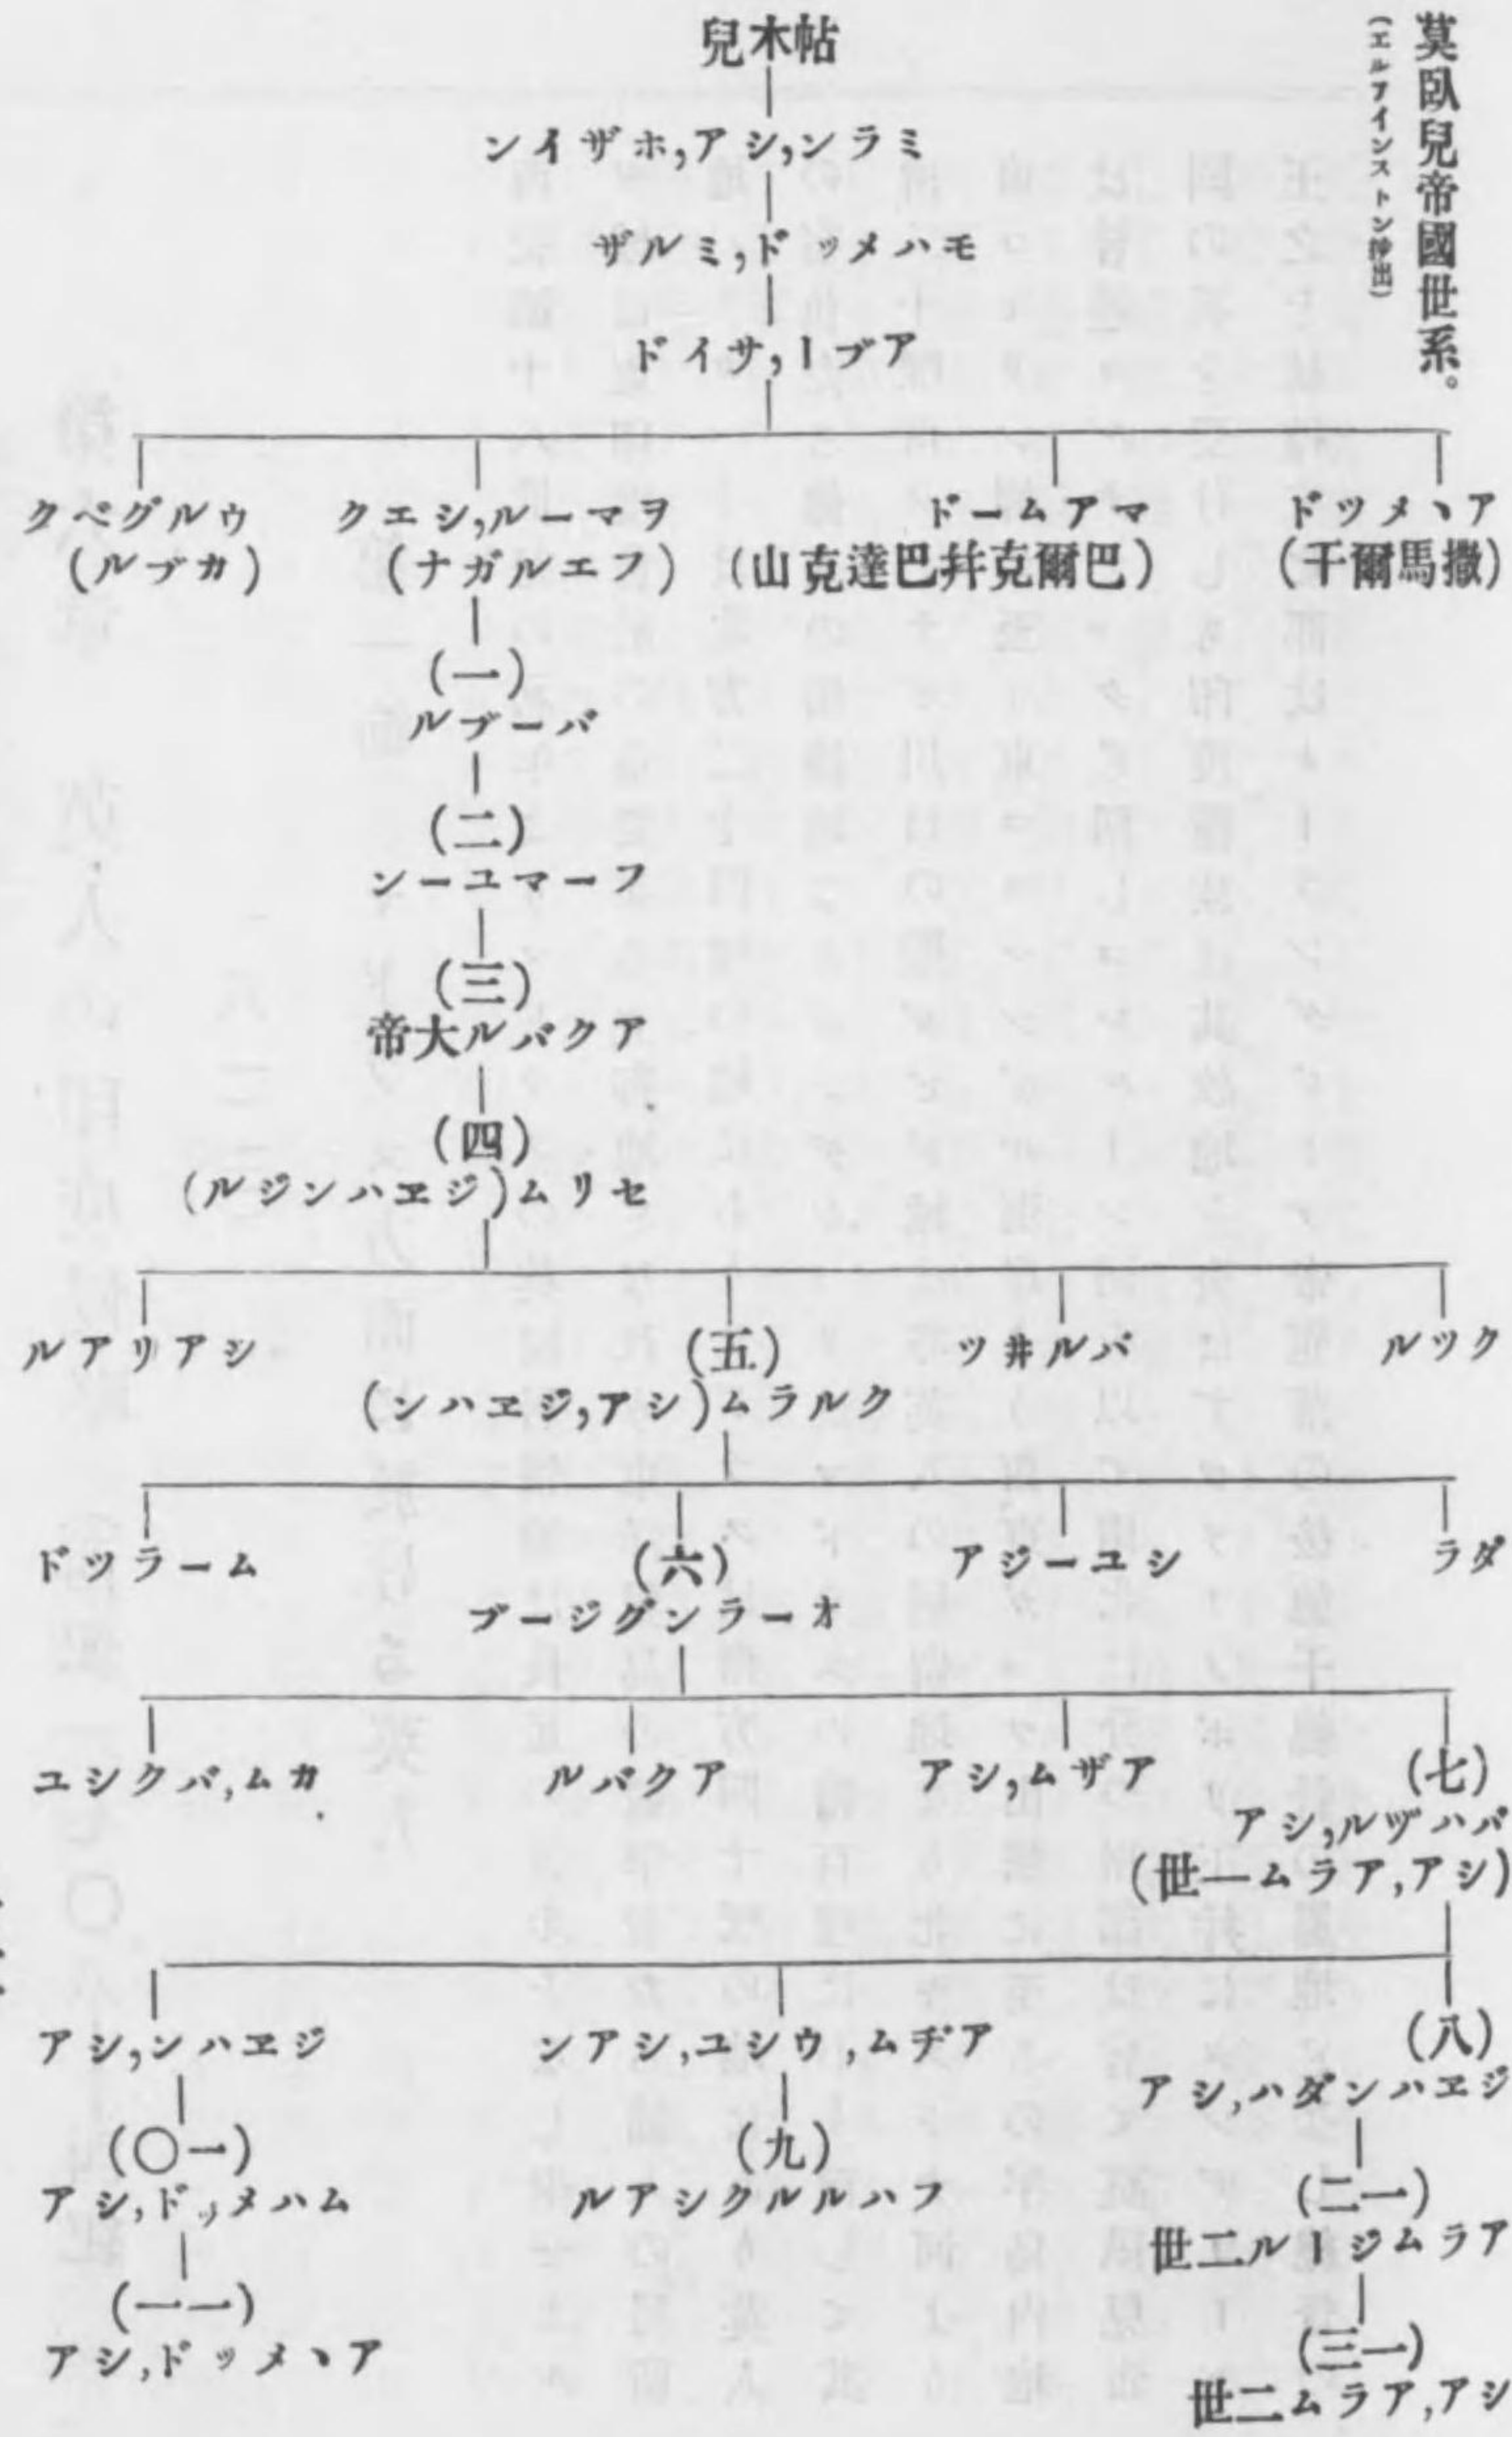 莫臥兒帝國世系。
(エルフインストン挿出)
帖木兒
ミラン,シア,ホザイン
モハメッド,ミルザ
アブー,サイド
アヽメツド
(撒馬爾干)
マアムード
(巴爾克幷巴達克山)
ヲマール,シエク
(フエルガナ)
ウルグベク
(カブル)
(一)
バーブル
(二)
フーマユーン
(三)
アクバル大帝
(四)
セリム(ジヱハンジル)
クツル
パル井ツ
(五)
クルラム(シア,ジヱハン)
シアリアル
ダラ
シユージア
(六)
オーラングジーブ
ムーラツド
(七)
バハヅル,シア
(シア,アラム一世)
アザム,シア
アクバル
カム,バクシユ
(八)
ジヱハンダハ,シア
アヂム,ウシユ,シアン
ジヱハン,シア
(九)
フハルルクシアル
(一〇)
ムハメッド,シア
(一一)
アヽメッド,シア
(一二)
アラムジール二世
(一三)
シア,アラム二世